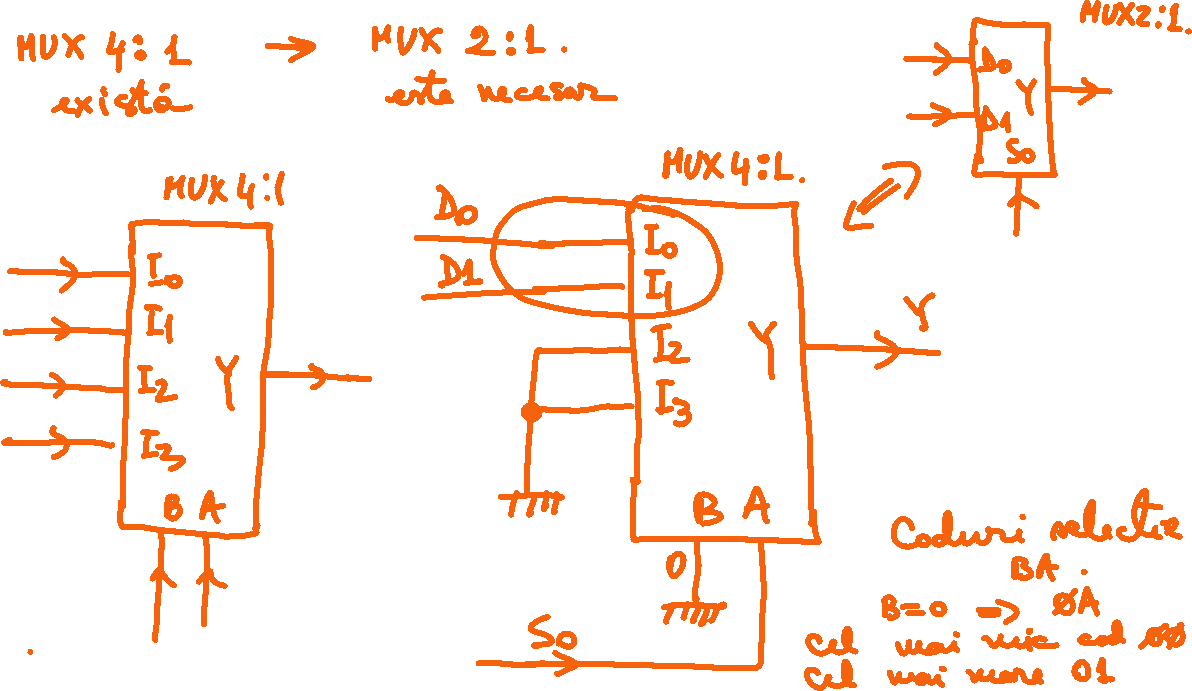 MUX 4:1 → MUX 2:1.
există
este necesar
MUX2:1.
D0
D1
Y
S0
MUX 4:1
I0
I1
I2
I3
Y
B A
MUX 4:1.
D0
D1
I0
I1
I2
I3
Y
Y
B A
0
S0
Coduri selectie
BA.
B=0 => ØA
cel mai mic cod ØØ
cel mai mare 01